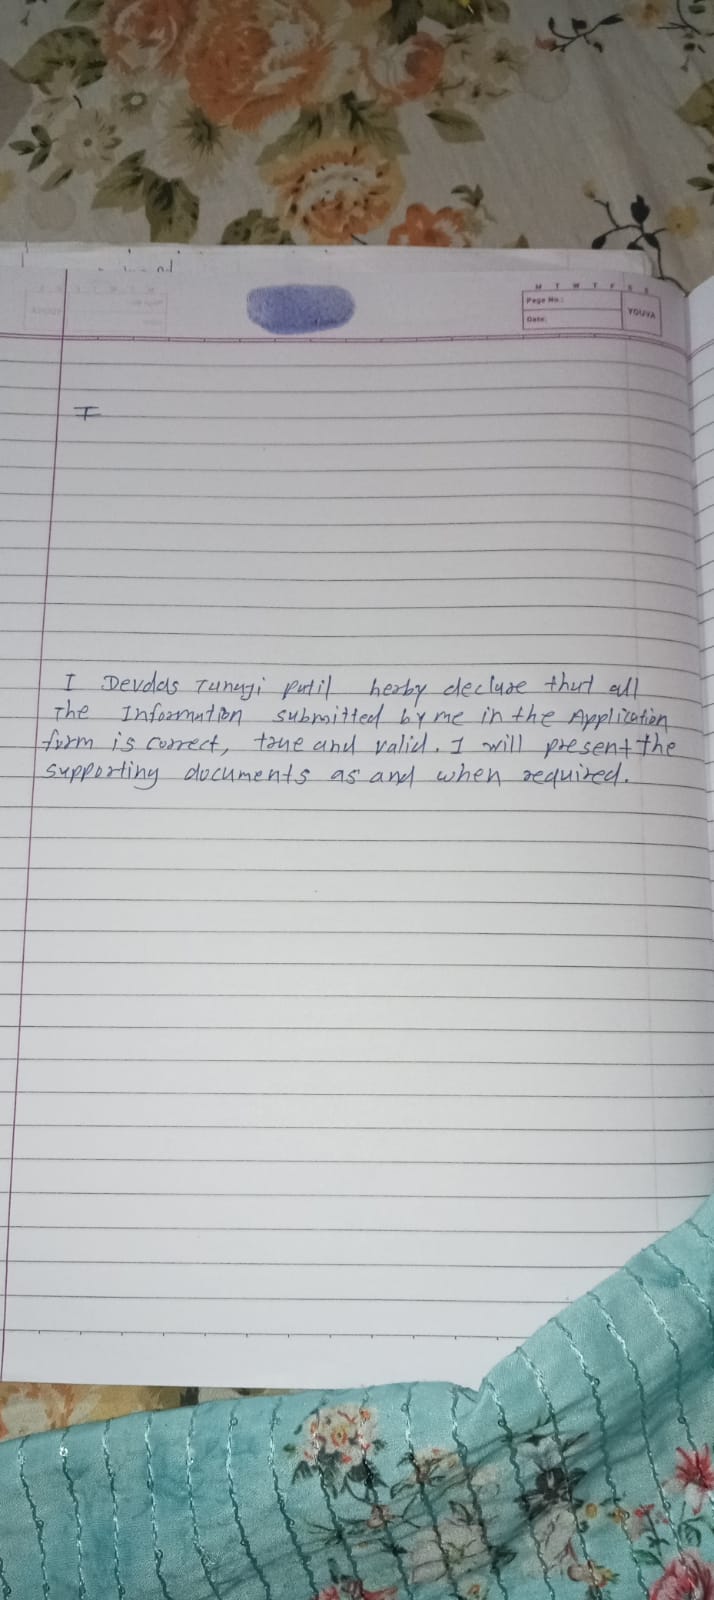 M T W T F S S
Page No.:
Date:
YOUVA
I
I Devdas Tanaji patil herby declare that all
The Information submitted by me in the Application
form is correct, true and valid. I will present the
supporting documents as and when required.